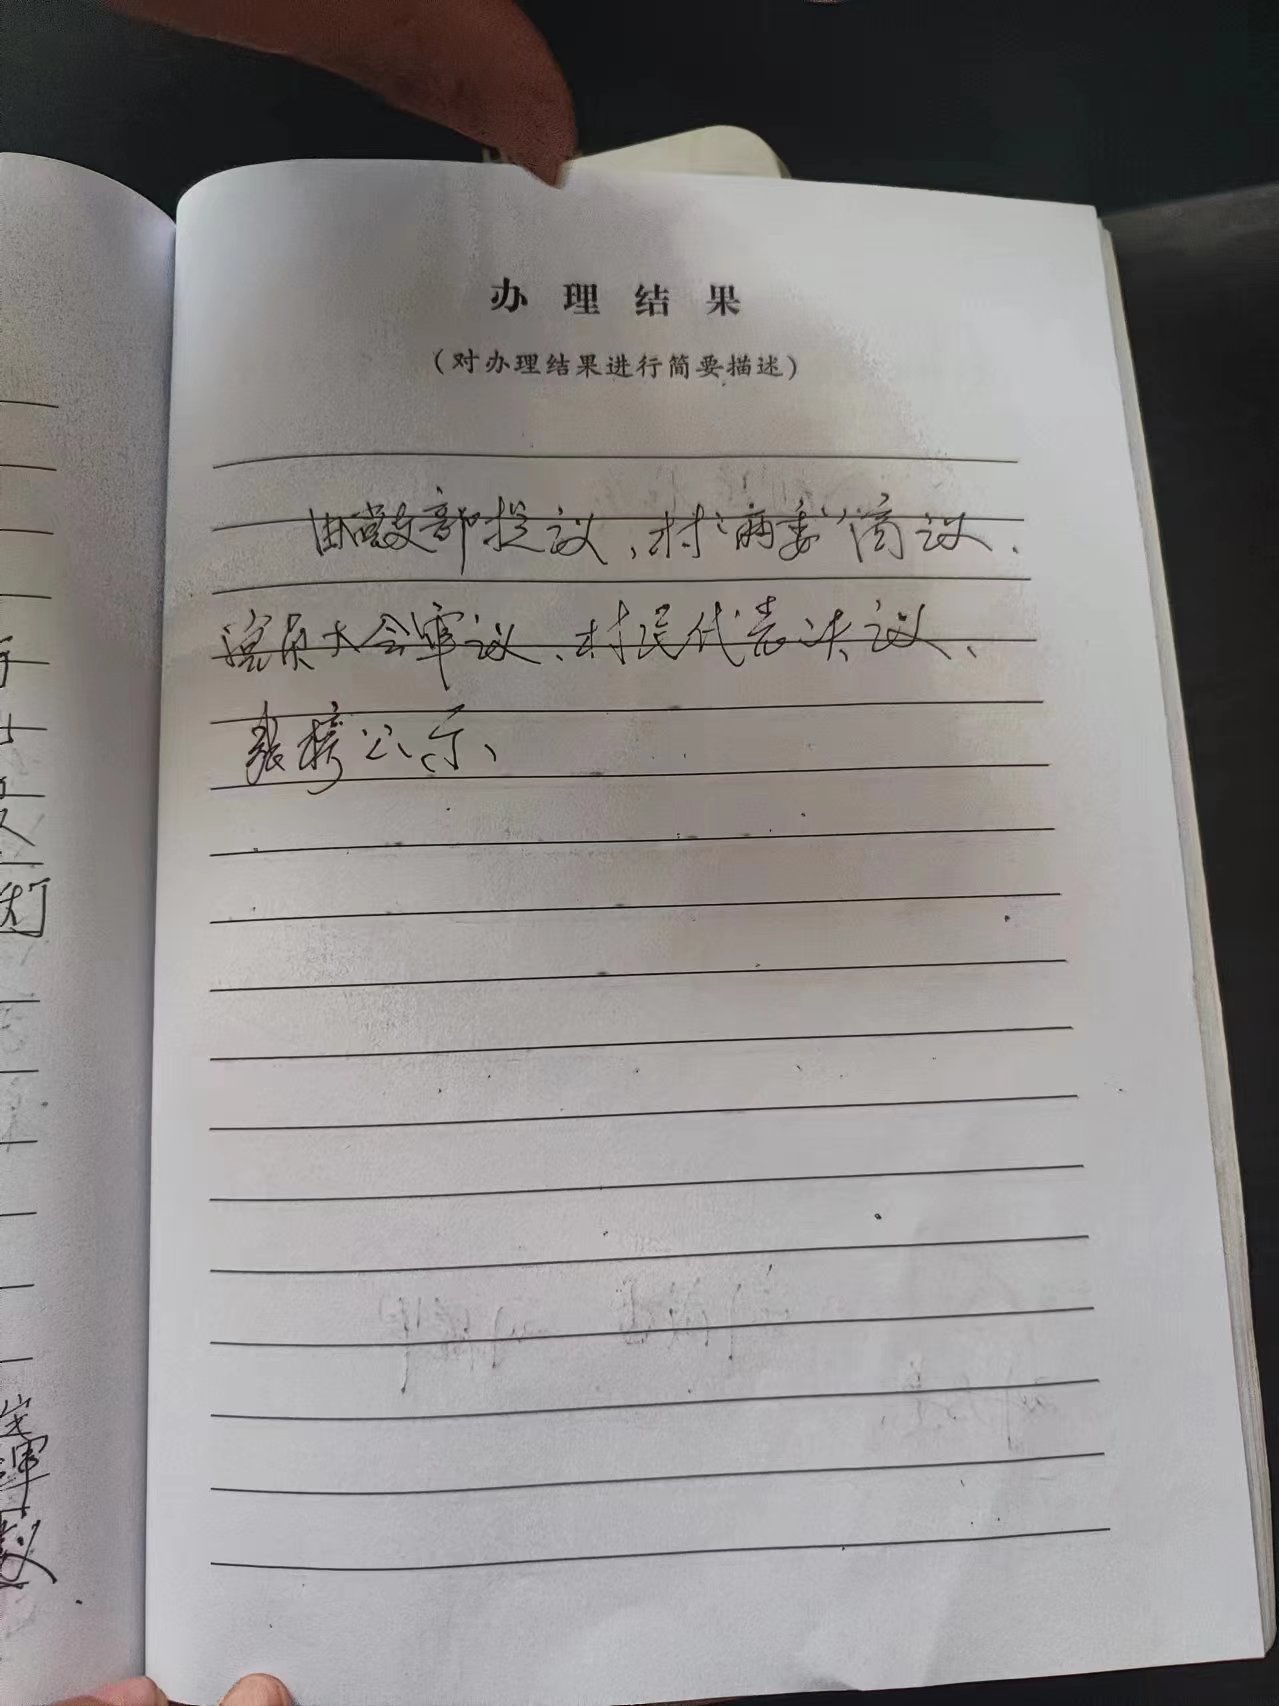 办理结果
(对办理结果进行简要描述)
由党支部提议、村“两委”商议、
党员大会审议、村民代表决议、
张榜公示、
灯